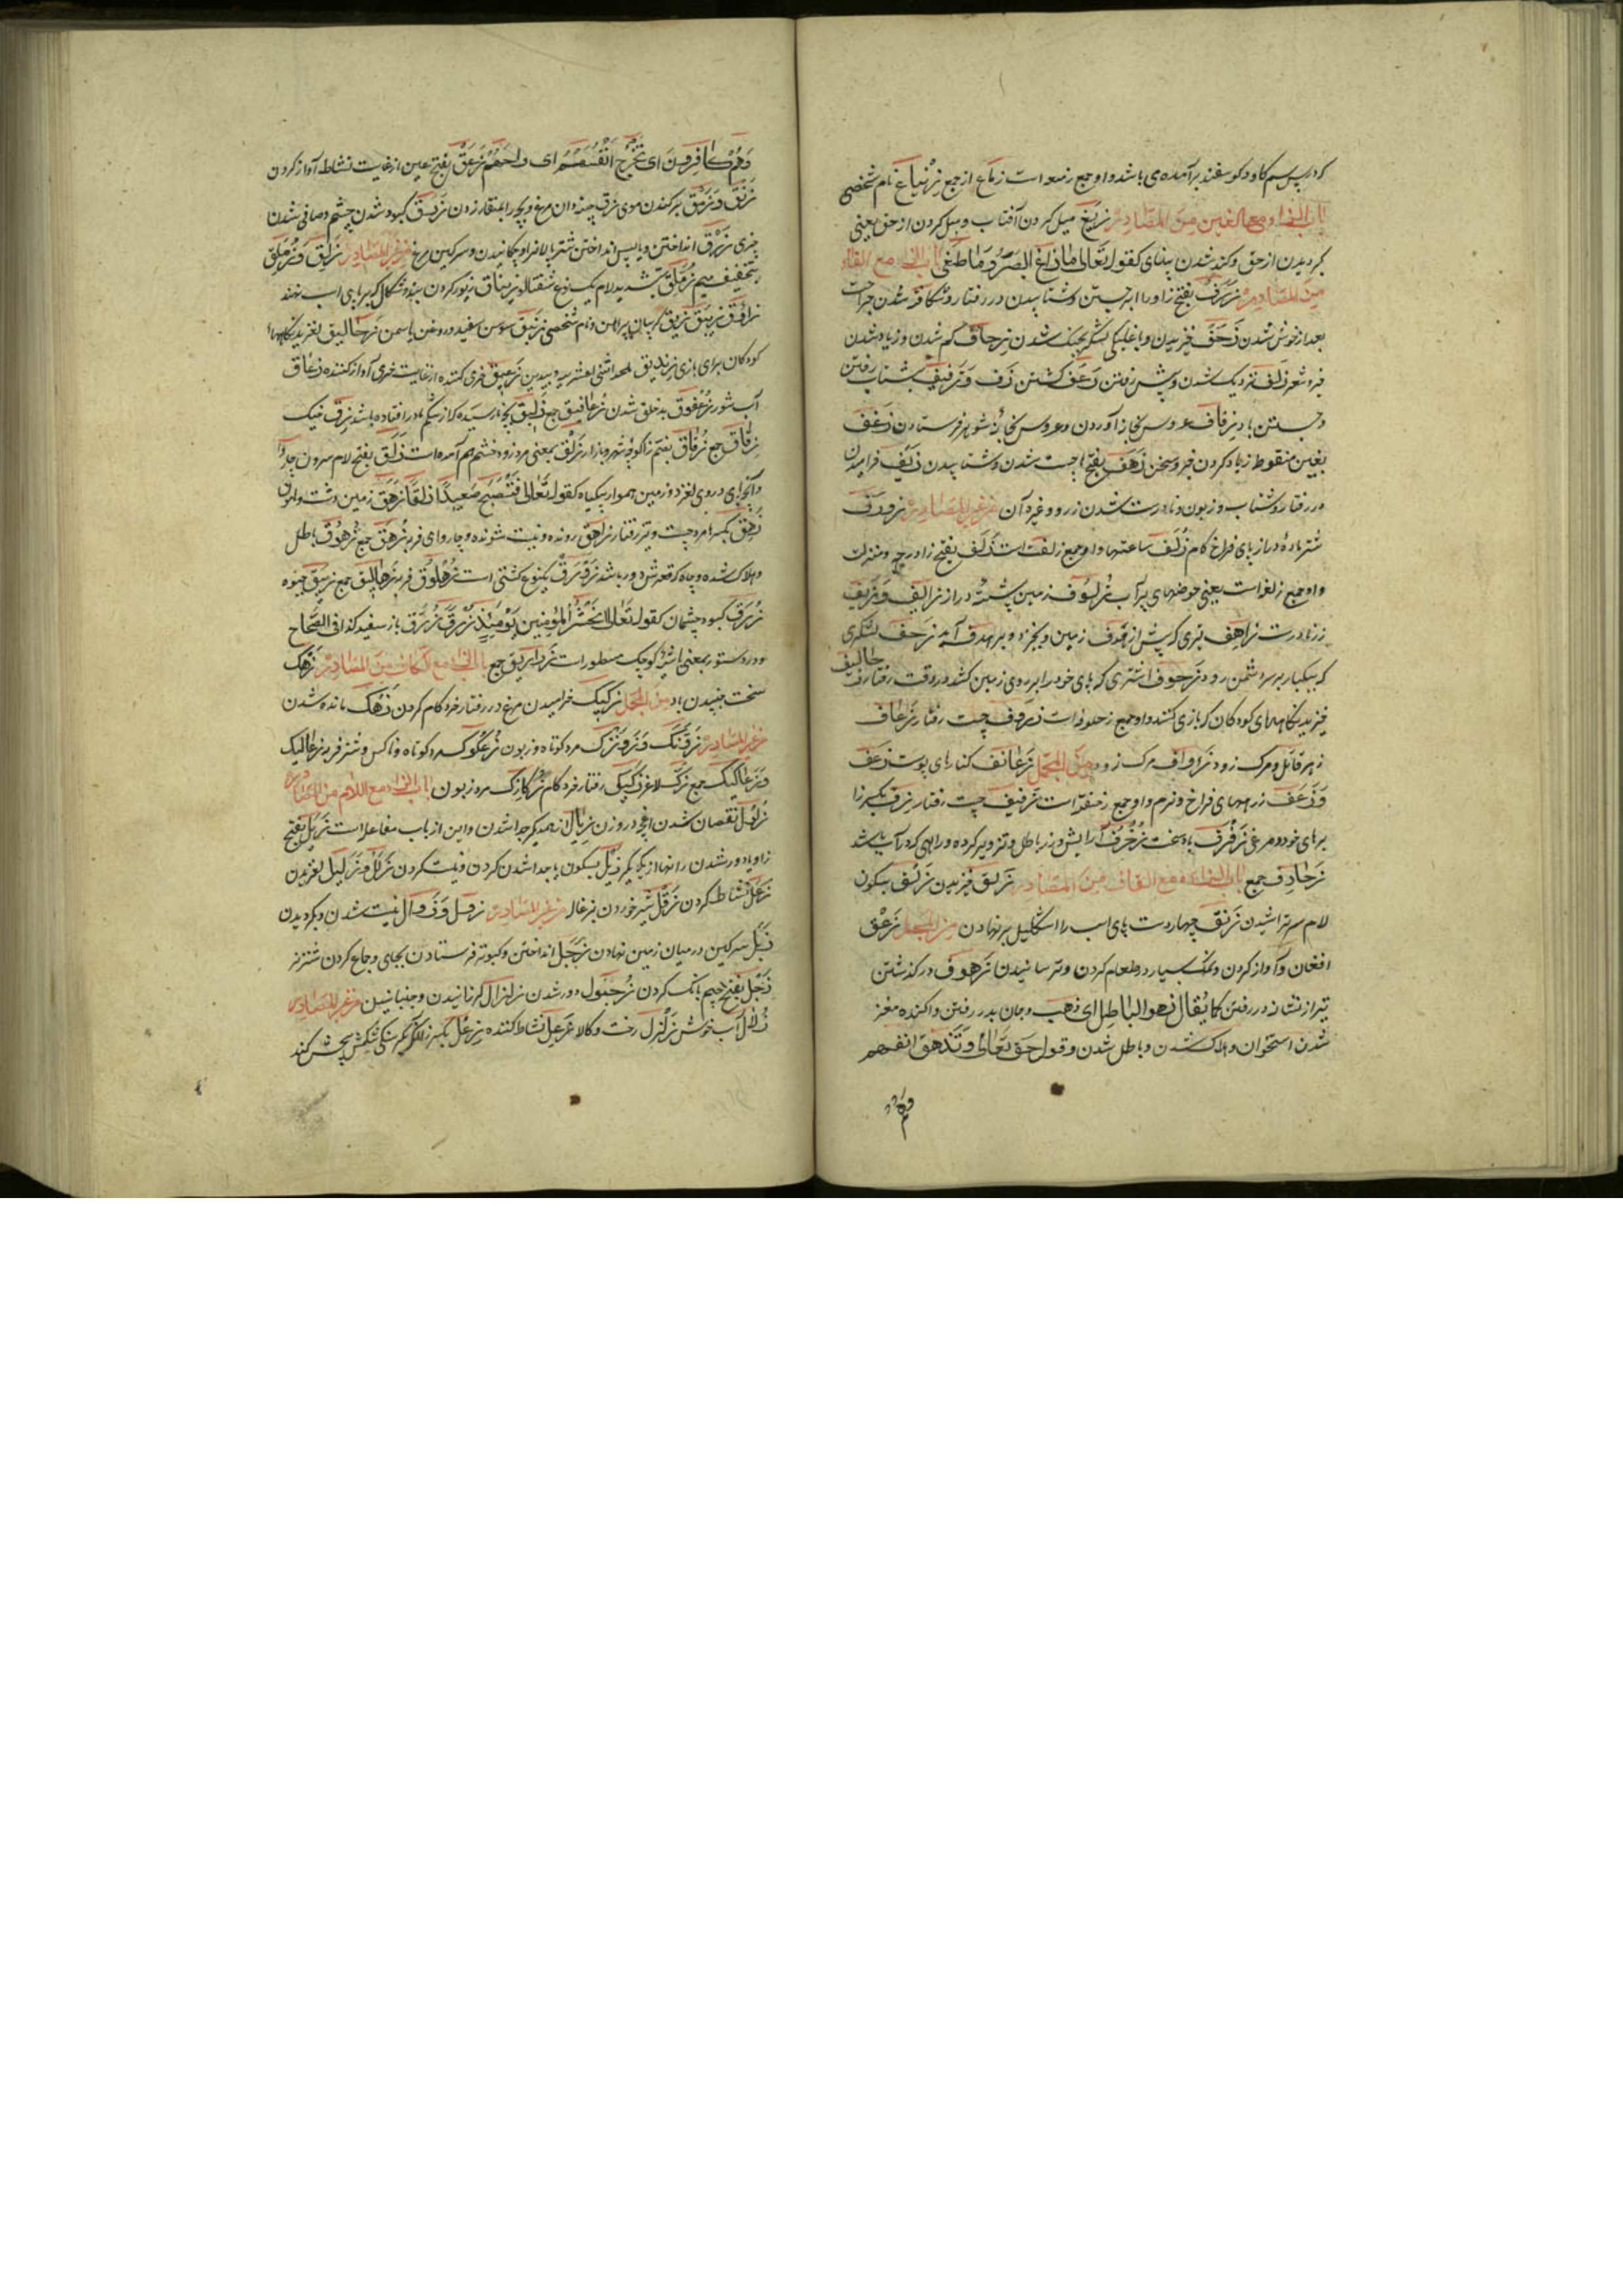 که در پس سم کاو و کوسفند برآمده می باشد و او جمع زمعه است زماع از جمع زنباع نام شخصی
باب الزاء مع الغین من المصادر زیغ میل کردن آفتاب و میل کردن از حق یعنی
کردیدن از حق و کند شدن بینای کقوله تعالی ما زاغ البصر و ما طغی باب الزاء مع الفاء
من المصادر بفتح زا و را جستن و شتابیدن در رفتار و شکافته شدن جراحت
بعد از خوش شدن زحف خیزیدن و با غلبکی لشکر بجنک شدن زحاف کم شدن و زیاد شدن
در شعر زلف نزدیک شدن و پیش رفتن زعف کشتن زف و زفیف شتاب رفتن
و جستن باد زفاف عروس بخانه آوردن و عروس بخانهٔ شوهر فرستادن زغف
بغین منقوط زیاد کردن خبر و سخن زهف بفتح ها چست شدن و شتابیدن زیف خرامیدن
در رفتار و شتاب و زبون و نادرست شدن زر و غیره آن من غیر المصادر
شتر مادهٔ دراز پای فراخ کام زلف ساعتها و او جمع زلفت است زلف بفتح زا درجه و منزلت
و او جمع زلفه است یعنی حوضهای پر آب زمین پشتهٔ دراز زایف و زیف
زر نادرست زاهف تیری که پیش از هدف زمین و بخیزد و بر هدف آید زحف لشکری
که بیکبار بر سر دشمن رود زحوف اشتری که پای خود را بر روی زمین کشد در وقت رفتار زحالیف
خیزیدنکاههای کودکان که بازی کنند و او جمع زحلوفه است چست رفتار زعاف
زهر قاتل و مرک زود زواف مرک زود من المجمل زعانف کنارهای پوست زغف
و زغف زرههای فراخ و نرم و او جمع زغفه است زفیف چست رفتار زف بکسر زا
پرهای خورد مرغ زفزف باد سخت زخرف آرایش و زر باطل و تزویر کرده و راهی که در آب باشد
زخارف جمع باب الزاء مع القاف من المصادر زلق خیزیدن زلق بسکون
لام سر تراشیدن زنق چهار دست پای اسب را اشکلیل بر نهادن من المجمل زعق
افغان و آواز کردن و نمک بسیار در طعام کردن و ترسانیدن زهوق در کذشتن
تیر از نشانه و در رفتن کما یقال زهق الباطل ای ذهب و جان بدر رفتن و آکنده مغز
شدن استخوان و هلاک شدن و باطل شدن و قوله حق تعالی و تزهق انفسهم
وهم کافرون ای تخرج انفسهم ای ارواحهم زعق بفتح عین از غایت نشاط آواز کردن
زبق و برکندن موی زرق چینه دان مرغ و بچه را بمنقار زدن زرق کبود شدن چشم و صافی شدن
چیزی زرق انداختن و باپس انداختن شتر پالان را و چکانیدن و سرکین مرغ من غیر المصادر زلق و زملق
بتخفیف میم زملق بتشدید لام یک نوع شفتالو زناق زیور کردن بند و شکال که بر پای اسب نهند
زاووق زیبق زیق کریبان پیراهن و نام شخصی زنبق سوسن سفید و روغن یاسمن زحالیق لغزیدنکاههاء
کودکان برای بازی زندیق ملحد اثنی العشریه و بیدین زعق خری کننده از غایت خری آواز کننده زعاق
آب شور زعقوق بدخلق شدن زعاقیق جمع زلیق بچه نارسیده که از شکم مادر افتاده باشد زق خیک
زقاق جمع زقاق بضم زا کوچهٔ شهر و بازار زلق بمعنی مرد زود خشم هم آمده است زلق بفتح لام سرون چاروا
و آنجای در وی لغزد و زمین هموار بیکیاه کقوله تعالی فتصبح صعیدا زلقا زهق زمین دشت و املس
زهق بکسر ها مرد چست و تیز رفتار زاهق رونده و نیست شونده و چاروای فربه زهق جمع زهوق باطل
و هلاک شده و چاه که قعرش دور باشد زورق یکنوع کشتی است زهلوق فربه زهالیق جمع زیبق جیوه
زرق کبود چشمان کقوله تعالی نحشر المجرمین یومئذ زرقا زرق باز سفید کذا فی الصحاح
و در دستور بمعنی باشهٔ کوچک مسطور است زراریق جمع باب الزاء مع الکاف من المصادر زهک
سخت جنبیدن باد من المجمل زکیک خرامیدن مرغ و در رفتار خرد کام کردن زهک مانده شدن
من غیر المصادر زونک و زونزک مرد کوتاه و زبون زعکوک مرد کوتاه و ناکس و شتر فربه زعالیک
و زعاکیک جمع زک لاغر زکیک رفتار خرد کام مرد زبون باب الزاء مع اللام من المصادر
نقصان شدن زیال از همدیکر جدا شدن و این از باب مفاعله است زیل بفتح
زا و یا دور شدن رانها از یکدیکر زیل بسکون یا جدا شدن کردن و نیست کردن زلل و زلیل لغزیدن
زعل نشاط کردن زقل شیر خوردن بزغاله من غیر المصادر زول و زوال نیست شدن و بکردیدن
زبل سرکین در میان زمین نهادن زجل انداختن و کبوتر فرستادن بجای و جماع کردن شتر نر
زجل بفتح جیم بانک کردن دور شدن زلزال لرزانیدن و جنبانیدن من غیر المصادر
زلال آب خوش زلزل رخت و کالا زعل نشاط کننده بکسر زا